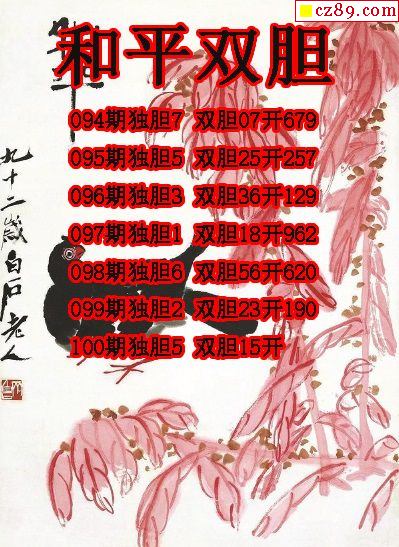 cz89.com
和平双胆
094期独胆7 双胆07开679
095期独胆5 双胆25开257
096期独胆3 双胆36开129
097期独胆1 双胆18开962
098期独胆6 双胆56开620
099期独胆2 双胆23开190
100期独胆5 双胆15开
九十二歲白石老人